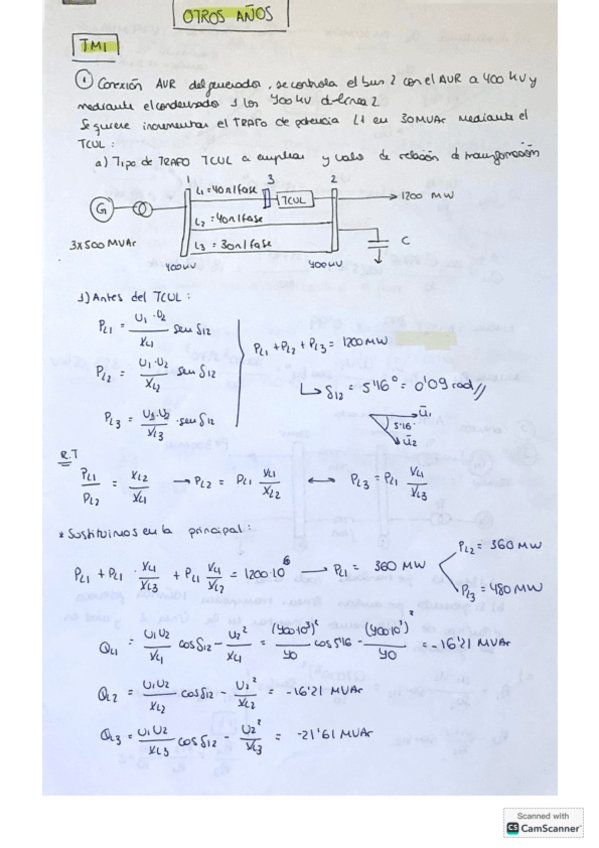 OTROS AÑOS
TM1
① Conexión AVR del generador, se controla el bus 2 con el AVR a 400 kV y
mediante el condensador 1 los 400 kV de línea 2.
Se quiere incrementar el TRAFO de potencia L1 en 30 MVAr mediante el
TCUL:
a) Tipo de TRAFO TCUL a emplear y valor de relación de transformación
1 L1 = 40Ω/fase 3 TCUL 2 → 1200 MW
G L2 = 40Ω/fase
3x500 MVAr L3 = 30Ω/fase C
400kV 400kV
1) Antes del TCUL:
PL1 = U1·U2/XL1 sen δ12
PL2 = U1·U2/XL2 sen δ12
PL3 = U3·U2/XL3 · sen δ12
PL1 + PL2 + PL3 = 1200 MW
↳ δ12 = 5'16° = 0'09 rad//
Ū1
5'16°
Ū2
R.T
PL1/PL2 = XL2/XL1 → PL2 = PL1 XL1/XL2 ↔ PL3 = PL1 XL1/XL3
* Sustituimos en la principal:
PL1 + PL1 · XL1/XL3 + PL1 XL1/XL2 = 1200·10⁶ → PL1 = 360 MW
PL2 = 360 MW
PL3 = 480 MW
QL1 = U1U2/XL1 cos δ12 - U2²/XL1 = (400·10³)²/40 cos 5'16 - (400·10³)²/40 = -16'21 MVAr
QL2 = U1U2/XL2 cos δ12 - U2²/XL2 = -16'21 MVAr
QL3 = U1U2/XL3 cos δ12 - U2²/XL3 = -21'61 MVAr
Scanned with
CS CamScanner